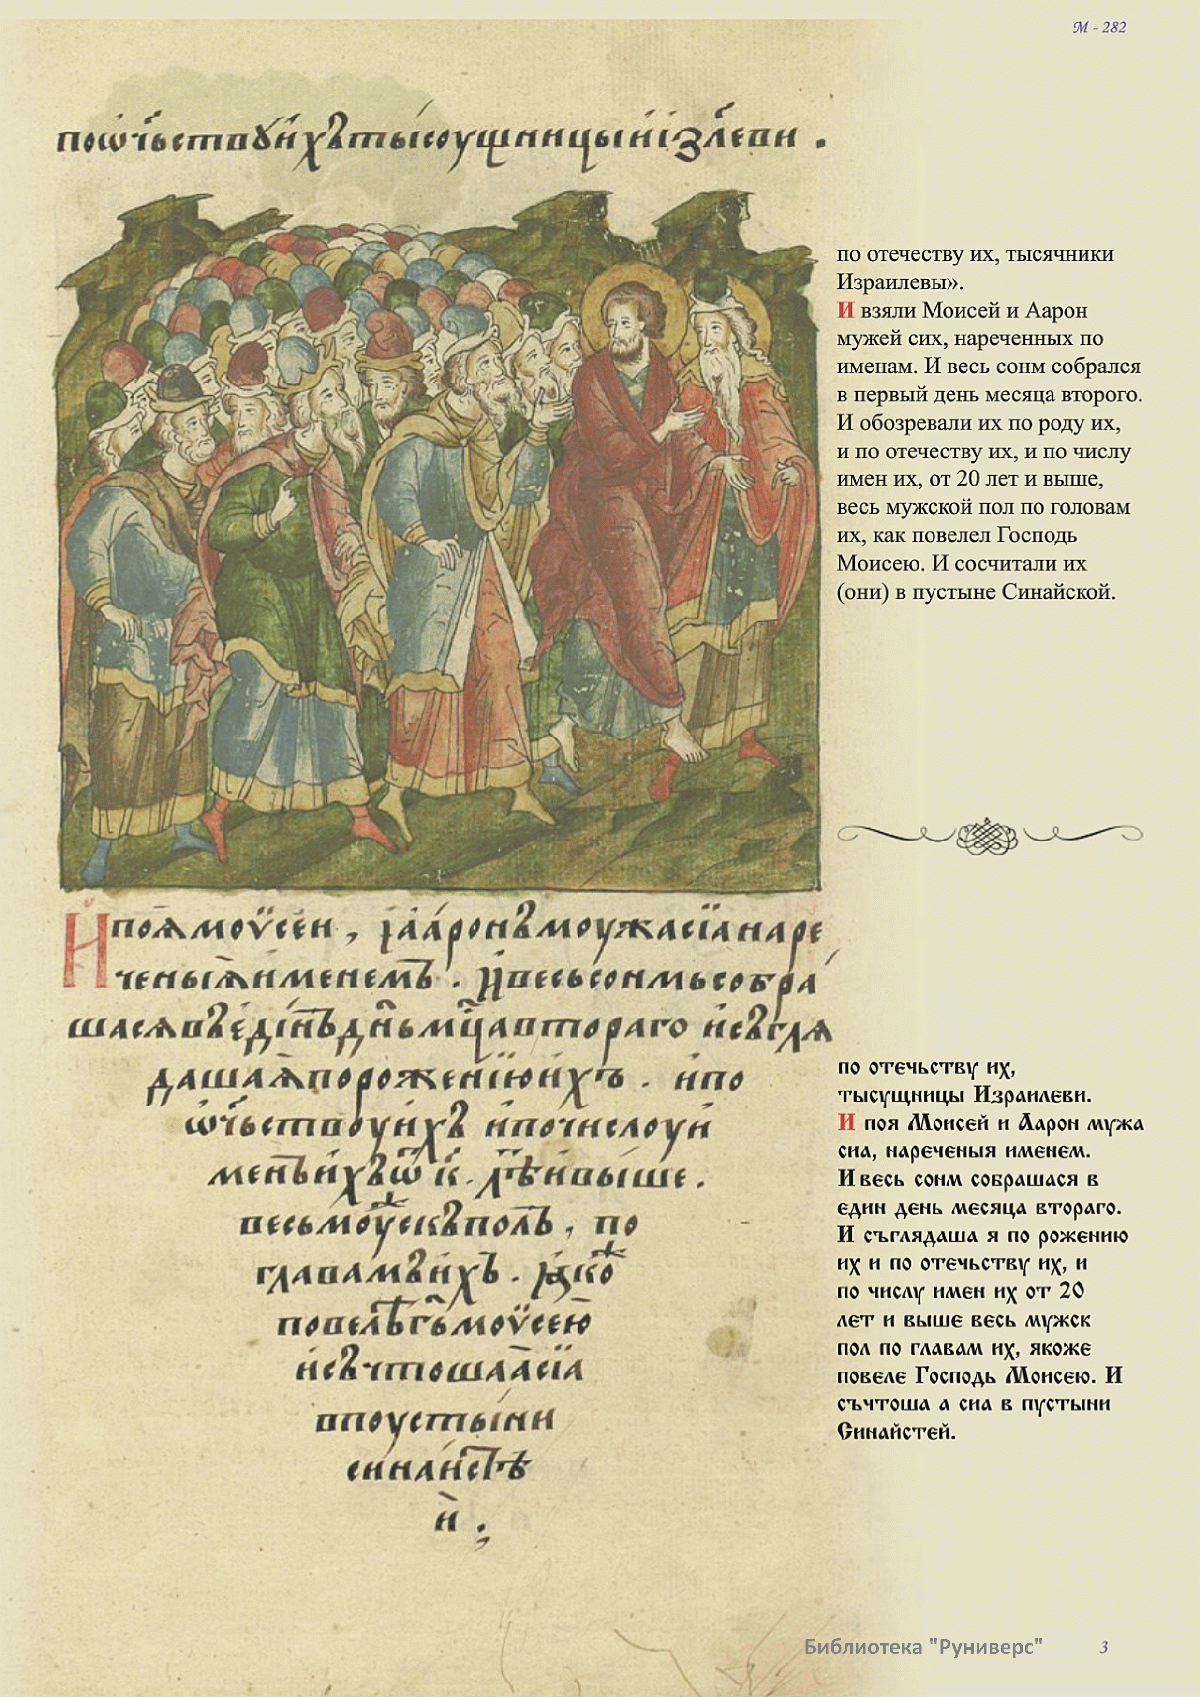 М - 282
поѡч҃ьствꙋи́хъты́соущницыиізл҃еви .
по отечеству их, тысячники
Израилевы».
И взяли Моисей и Аарон
мужей сих, нареченных по
именам. И весь сонм собрался
в первый день месяца второго.
И обозревали их по роду их,
и по отечеству их, и по числу
имен их, от 20 лет и выше,
весь мужской пол по головам
их, как повелел Господь
Моисею. И сосчитали их
(они) в пустыне Синайской.
Ипоꙗмоѵсеи , іаа́ронъмоужасїанаре
ченыꙗименемъ . ивесьсонмьсобра́
шасѧвъеди́нъдн҃ьмц҃автораго исъглѧ
дашаꙗпорожениюихъ . ипо
ѡч҃ьствоуихъ ипочислоуи
менъихъѿ к҃ . лѣ̑ивы́ше .
весьмоужскъполъ , по
главамъихъ . ꙗкоже
повелѣгь҃моѵсею
исъчтошаасїа
впоусты́ни
синаистѣ
и ;
по отечьству их,
тысущницы Израилеви.
И поя Моисей и Аарон мужа
сиа, нареченыя именем.
И весь сонм собрашася в
един день месяца втораго.
И съглядаша я по рожению
их и по отечьству их, и
по числу имен их от 20
лет и выше весь мужск
пол по главам их, якоже
повеле Господь Моисею. И
съчтоша а сиа в пустыни
Синайстей.
Библиотека "Руниверс"
3